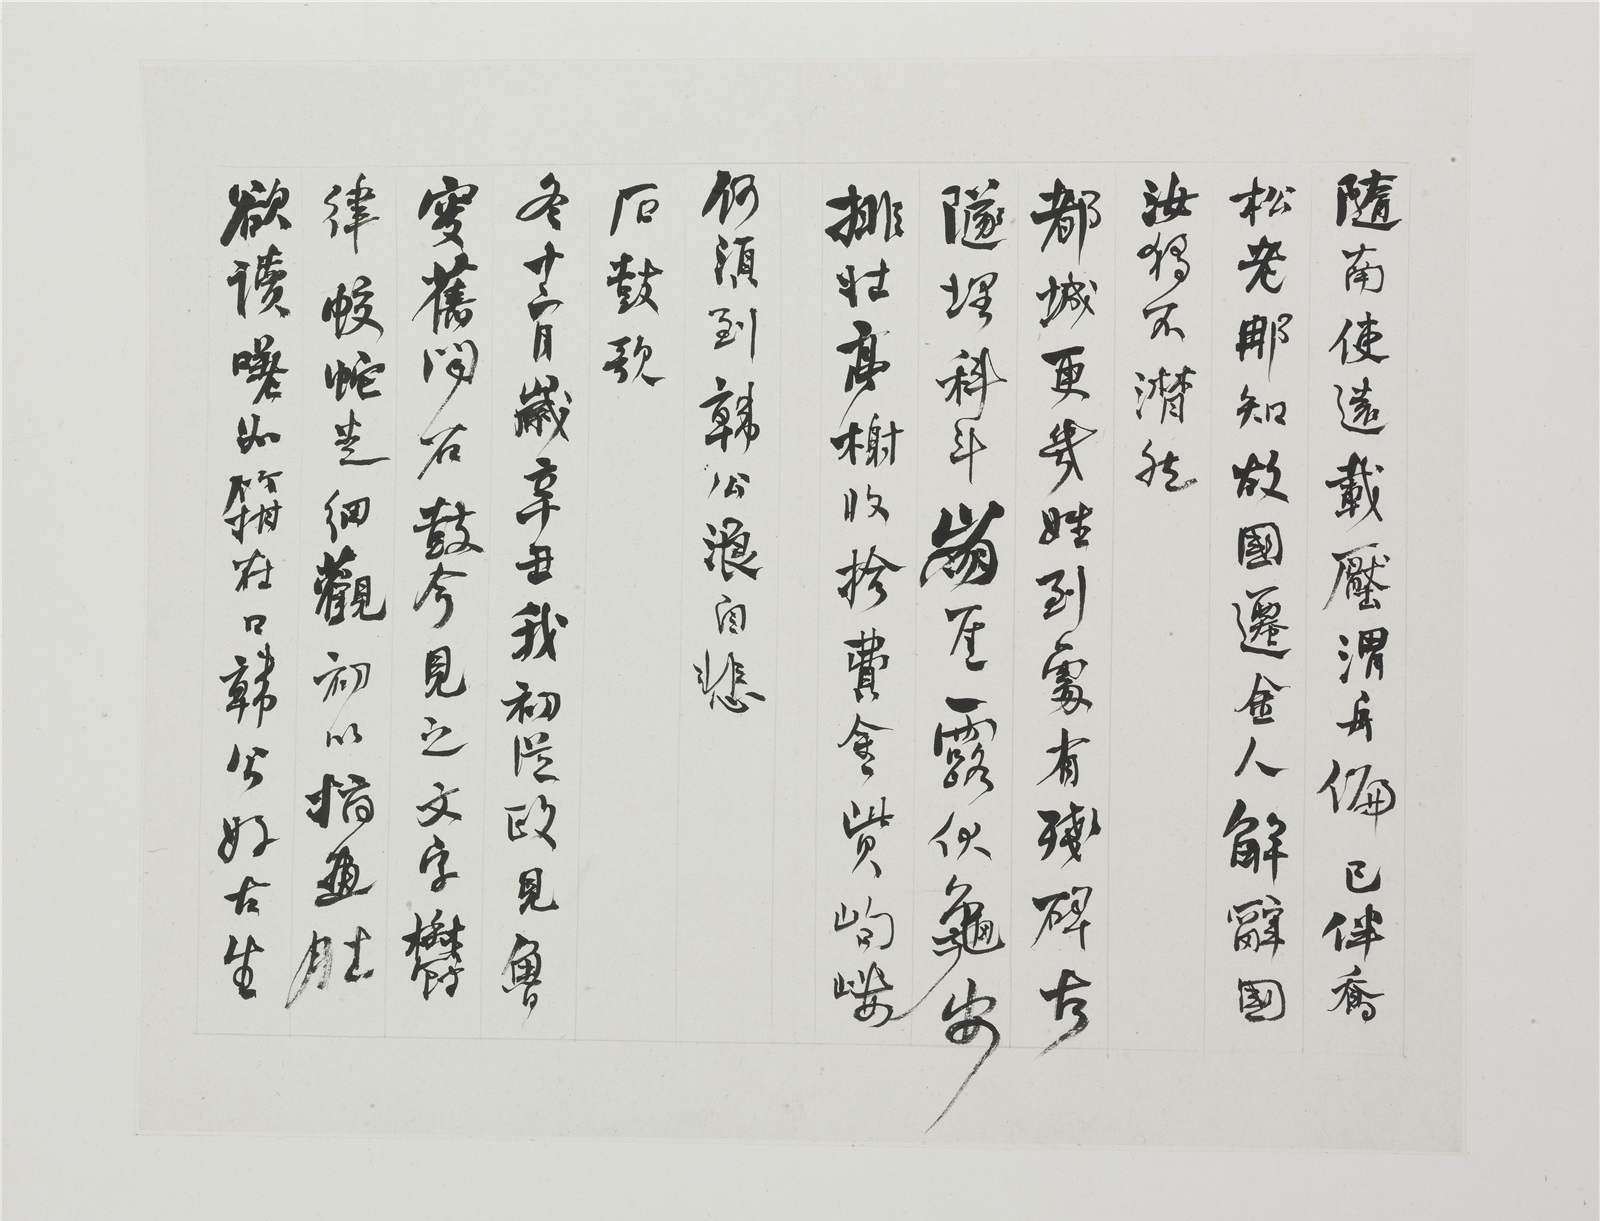 隨南使遠載壓渭舟偏已伴喬
松老那知故國遷金人解辭國
汝獨不潸然
都城更幾姓到處有殘碑古
隧埋科斗崩崖露伏龜安
排壯亭榭收拾費金貲岣嶁
何須到韓公浪自悲
石鼓歌
冬十二月歲辛丑我初從政見魯
叟舊聞石鼓今見之文字鬱
律蛟蛇走細觀初以指畫肚
欲讀嗟如箝在口韓公好古生